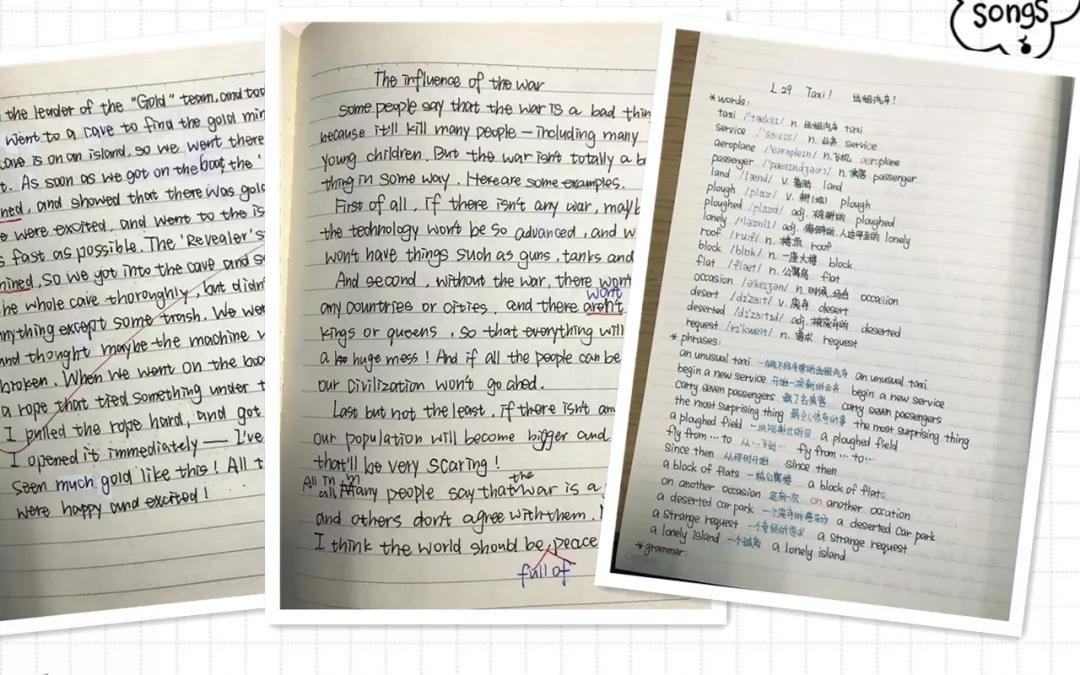 songs
the leader of the "Gold" team, and too
went to a cave to find the gold min
cave is on an island, so we went there
t. As soon as we got on the boat the '
ned, and showed that there was gold
e were excited, and went to the is
s fast as possible. The 'Revealer's
mined, so we got into the cave and se
he whole cave thoroughly, but didn
anything except some trash. We wer
and thought maybe the machine w
broken. When we went on the boa
a rope that tied something under t
I pulled the rope hard, and got
I opened it immediately — I've
seen much gold like this! All t
were happy and excited!
The influence of the war
Some people say that the war is a bad thin
because it'll kill many people — including many
young children. But the war isn't totally a b
thing in some way. Here are some examples.
First of all, if there isn't any war, mayb
the technology won't be so advanced, and w
won't have things such as guns, tanks and
And second, without the war, there won't
won't
any countries or cities, and there aren't
kings or queens, so that everything will
a huge mess! And if all the people can be
our civilization won't go ahed.
Last but not the least, if there isn't an
our population will become bigger and
that'll be very scaring!
All in all many people say that the war is a
and others don't agree with them.
I think the world should be peace
full of
L 29 Taxi! 出租汽车!
* words:
taxi /'tæksi/ n. 出租汽车 taxi
service /'sə:vis/ n. 业务 service
aeroplane /'eərəplein/ n. 飞机 aeroplane
passenger /'pæsindʒər/ n. 乘客 passenger
land /lænd/ v. 着陆 land
plough /plaʊ/ v. 耕(地) plough
ploughed /plaʊd/ adj. 被耕的 ploughed
lonely /'ləʊnli/ adj. 偏僻的,人迹罕至的 lonely
roof /ru:f/ n. 楼顶 roof
block /blɒk/ n. 一座大楼 block
flat /flæt/ n. 公寓房 flat
occasion /ə'keiʒən/ n. 时候,场合 occasion
desert /di'zə:t/ v. 废弃 desert
deserted /di'zə:tid/ adj. 被废弃的 deserted
request /ri'kwest/ n. 请求 request
* phrases:
an unusual taxi 一辆不同寻常的出租汽车 an unusual taxi
begin a new service 开始一项新的业务 begin a new service
carry seven passengers 载7名乘客 carry seven passengers
the most surprising thing 最令人惊奇的事 the most surprising thing
a ploughed field 一块刚耕过的田 a ploughed field
fly from … to 从…飞到… fly from … to…
since then 从那时开始 since then
a block of flats 一幢公寓楼 a block of flats
on another occasion 还有一次 on another occation
a deserted car park 一个废弃的停车场 a deserted car park
a strange request 一个奇怪的请求 a strange request
a lonely island 一个孤岛 a lonely island
* grammar: